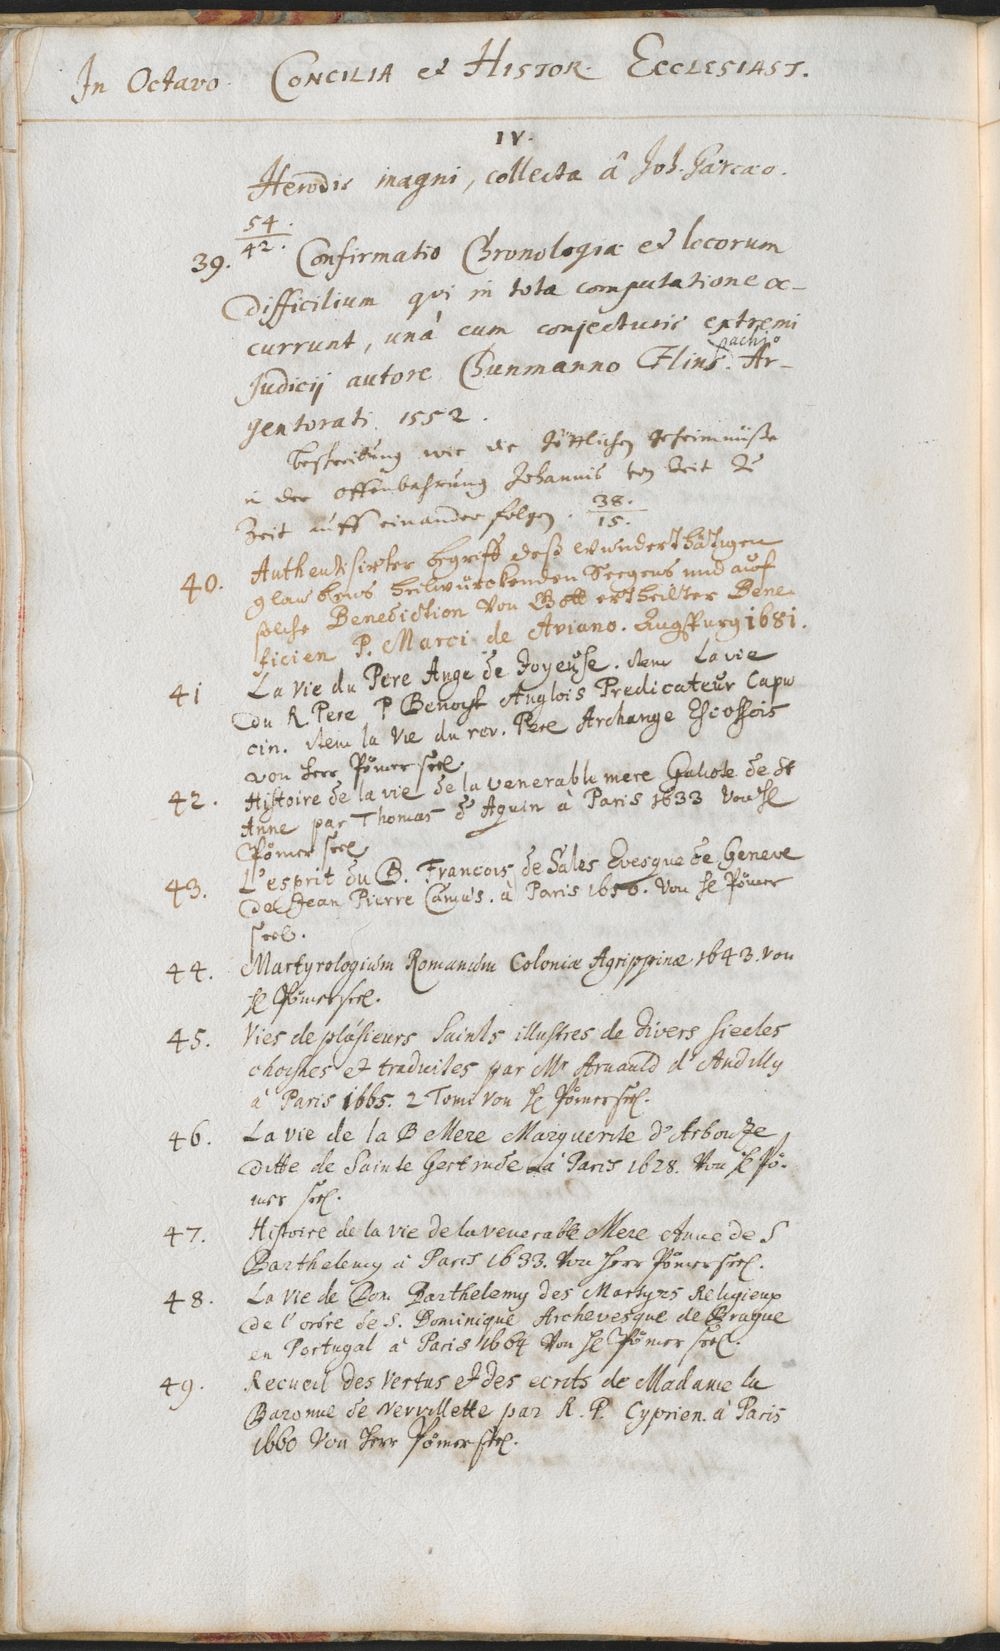 In Octavo. CONCILIA et HISTOR. ECCLESIAST.
IV.
Herodis magni, collecta â Joh. Garcæo.
54.
42.
39. Confirmatio Chronologiæ et locorum
difficilium qvi in tota computatione oc-
currunt, unà cum conjecturis extremi
Judicij autore Chunmanno Flinspachio. Ar-
gentorati 1552.
beschreibung wie die Göttlichen geheimnüße
in der offenbahrung Johannis von Zeit zu
Zeit auff einander folgen. 38.
15.
40. Authentisirter begriff deß wunderthätigen
glaubens heilwürckenden Seegens und auf
solche Benediction von Gott ertheilter Bene-
ficien P. Marci de Aviano. Augspurg 1681.
41 La vie du Pere Ange de Joyeuse. item La vie
du R Pere P Benoist Anglois Predicateur Capu
cin. item la Vie du rev. Pere Archange Escossois
von Herr Pömer seel.
42. Histoire de la vie de la venerable mere Galiote de St
Anne par Thomas d'Aquin à Paris 1633 von H
Pömer seel
43. L'esprit du B. Francois de Sales Evesque de Geneve
de Jean Pierre Camus. à Paris 1656. von H Pömer
seel.
44. Martyrologium Romanum Coloniæ Agrippinæ 1643. von
H Pömer seel.
45. Vies de plusieurs Saints illustres de divers siecles
choisies et traduites par Mr Arnauld d'Andilly
à Paris 1665. 2 Tomi von H Pömer seel.
46. La vie de la B Mere Marguerite d'Arbouze
ditte de Sainte Gertrude à Paris 1628. von H Pö-
mer seel.
47. Histoire de la vie de la venerable Mere Anne de S
Barthelemy à Paris 1633. von Herr Pömer seel.
48. La vie de Dom Barthelemy des Martyrs Religieux
de l'ordre de S. Dominique Archevesque de Brague
en Portugal à Paris 1664 von H Pömer seel.
49. Recueil des Vertus et des ecrits de Madame la
Baronne de Vervillette par R. P. Cyprien. à Paris
1660 von Herr Pömer seel.